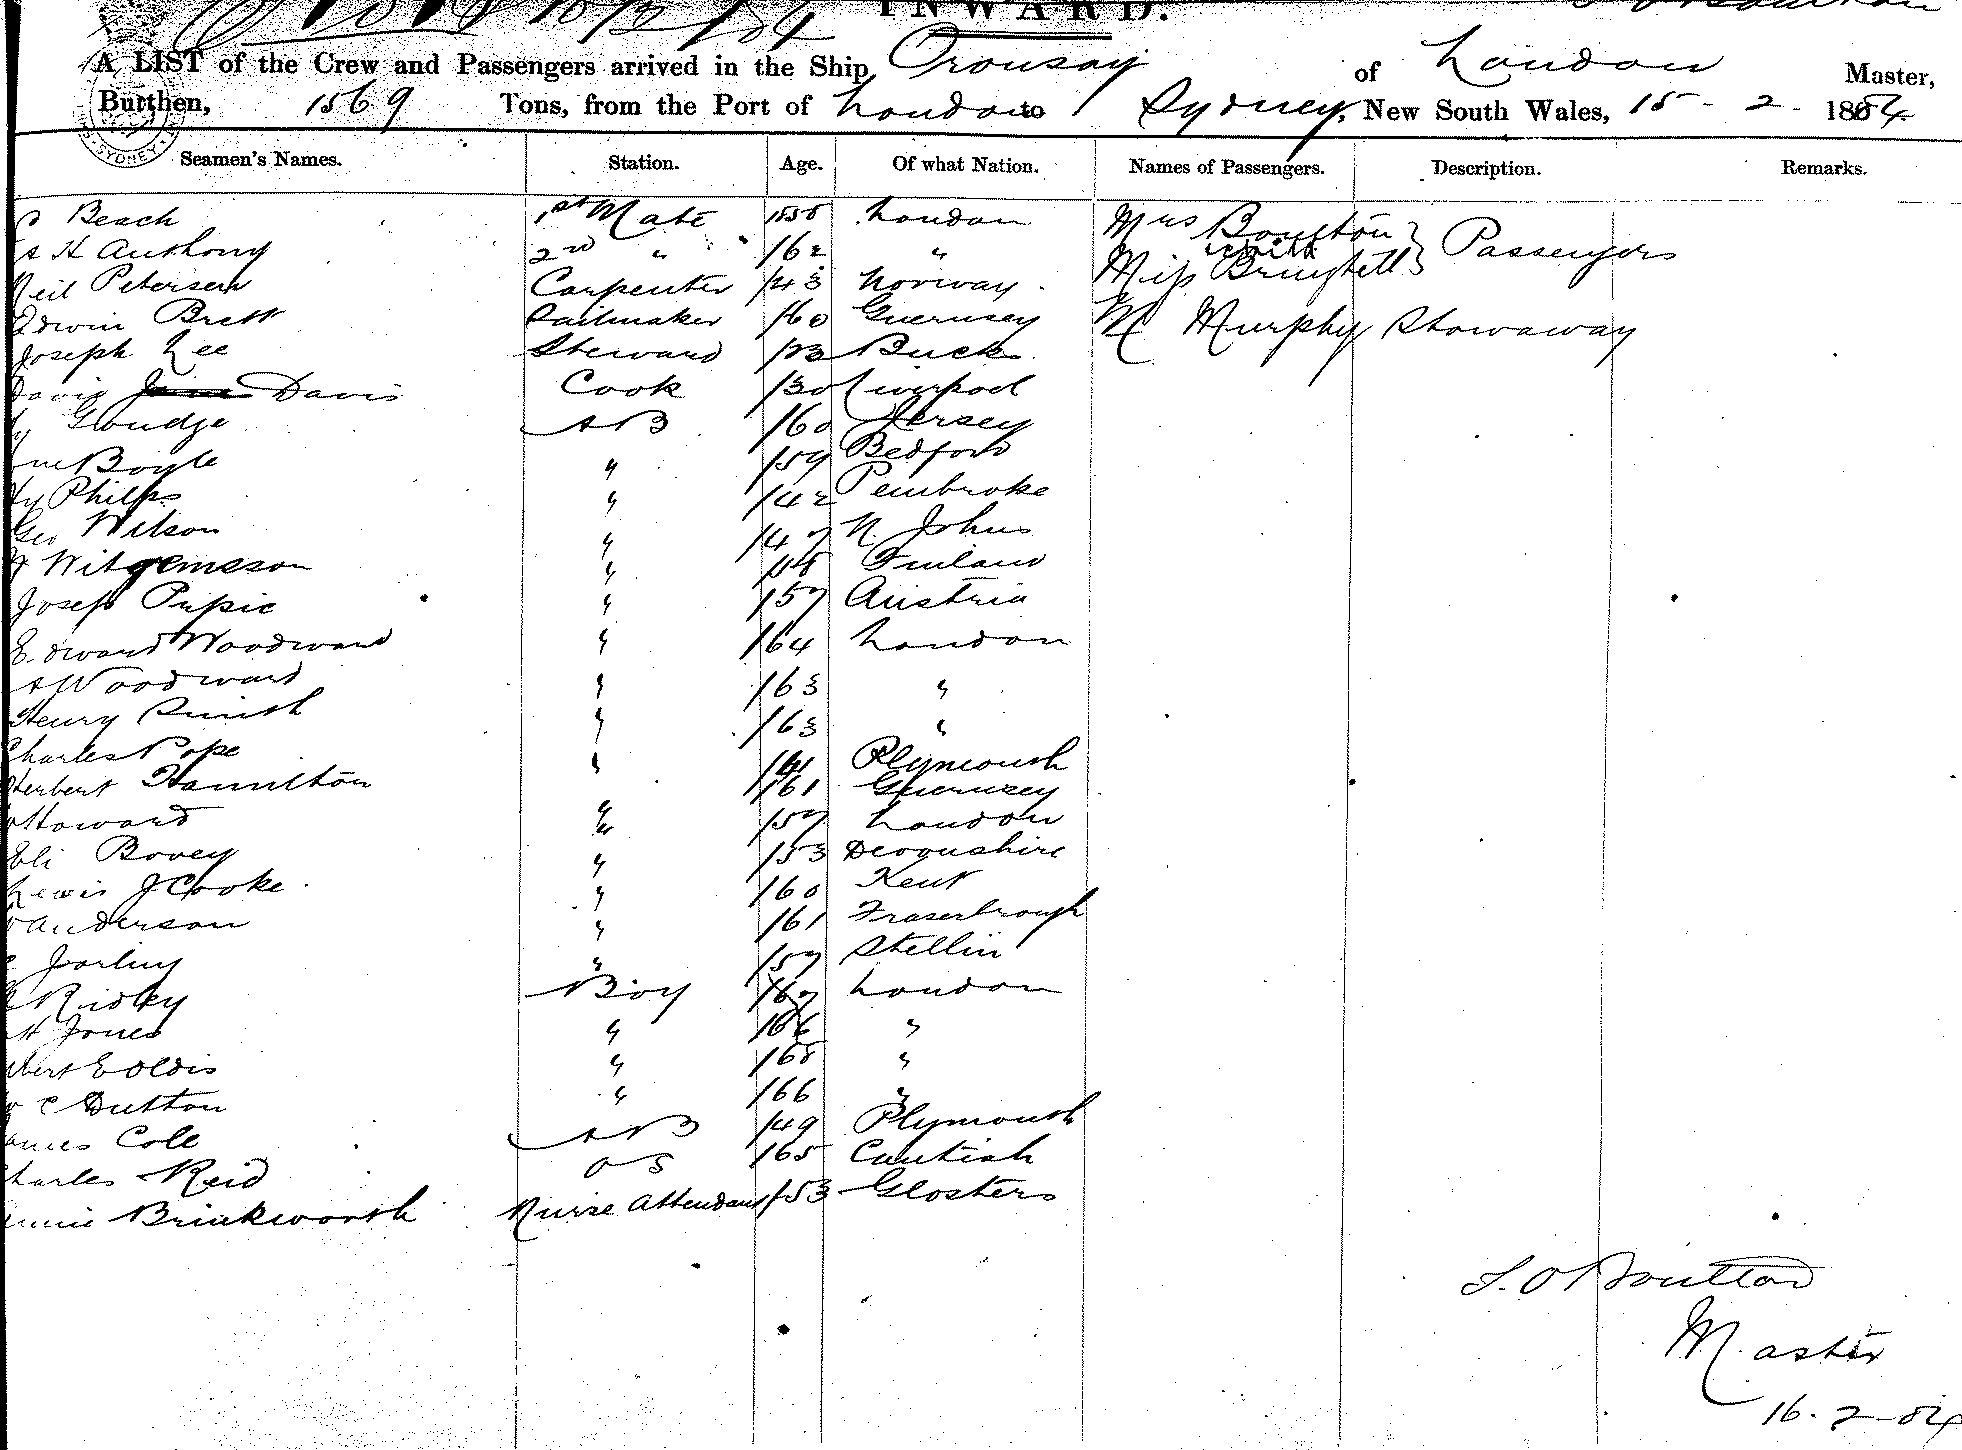 INWARD.
A LIST of the Crew and Passengers arrived in the Ship Oronsay of London Master,
Burthen, 1569 Tons, from the Port of London to Sydney, New South Wales, 15 - 2 - 1884
SYDNEY
Seamen's Names. Station. Age. Of what Nation. Names of Passengers. Description. Remarks.
Beach 1st Mate London Mrs Boulton
H Anthony 2nd " /62 " with Passengers
Neil Petersen Carpenter /43 Norway. Miss
Edwin Brett Sailmaker /60 Guernsey M Murphy Stowaway
Joseph Lee Steward Bucks
David Davis Cook /30 Liverpool
Goudge AB /60 Jersey
Boyle " /57 Bedford
Hy Philps " /42 Pembroke
Geo Wilson " /47 N. Johns
" Finland
Joseph Pupic " /57 Austria
Edward Woodward " /64 London
A Woodward " /63 "
Henry Smith " /63 "
Charles Pope " Plymouth
Herbert Hamilton " /61 Guernsey
Howard " /57 London
Eli Bovey " /53 Devonshire
Lewis J Cooke " /60 Kent
Anderson " /61 Fraserbrough
" /57 Stellin
Ridley Boy /67 London
H Jones " /66 "
" /68 "
C Dutton " /66 "
James Cole AB /49 Plymouth
Charles Reid OS /65
Annie Brinkworth Nurse Attendant /53 Glosters
Boulton
Master
16 . 2 - 84